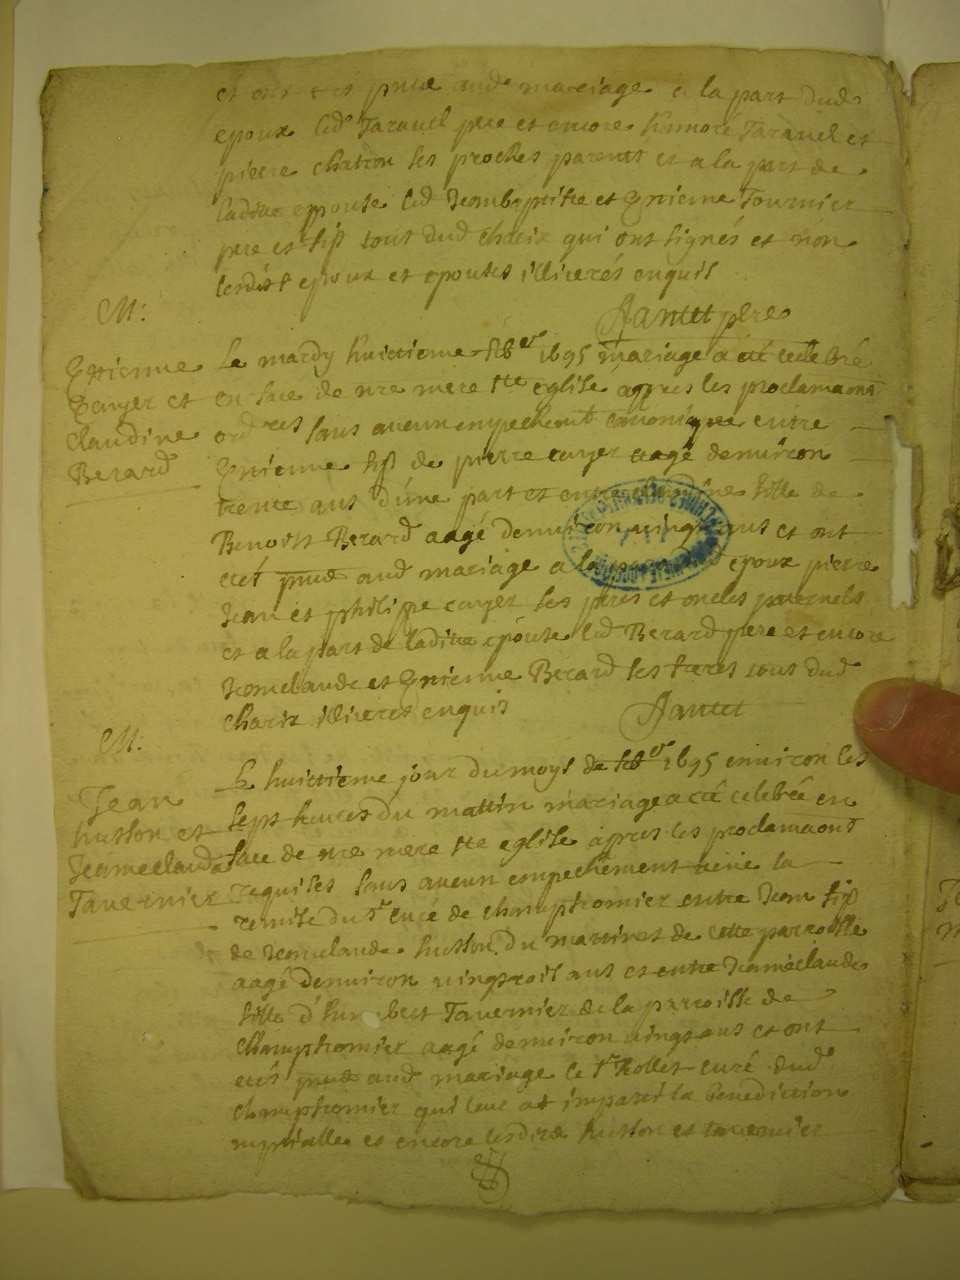 et ont etes pnts aud mariage a la part dud
epoux led Taravel pere et encore humnoré Taravel et
pierre chatron ses proches parents et a la part de
ladite epouse led Jeanbaptiste et Estienne Tournier
pere et fils tous dud charix qui ont signés et non
lesdits epoux et epouses illiterés enquis
Jantet pbre
M:
Estienne
Cayer et
Claudine
Berard
Le mardy huictieme febver 1695 mariage a été celebré
en face de nre mere ste eglise apres les proclamaons
ordres sans aucun empechemt canonique entre
Estienne fils de pierre cayer aagé denviron
trente ans d'une part et entre fille de
Benoist Berard aagé denviron vingt ans et ont
etés pnts aud mariage a la epoux pierre
Jean et philippe cayer ses peres et oncles paternels
et a la part de ladite epouse led Berard pere et encore
Jeanclaude et Estienne Berard ses freres tous dud
charix illiteres enquis
Jantet
M:
Jean
husson et
Jeanneclauda
Tavernier
Le huictieme jour du moys de febver 1695 environ les
sept heures du mattin mariage a été celebré en
face de nre mere ste eglise apres les proclamaons
requises sans aucun empechement veüe la
remise du sr curé de champfromier entre Jean fils
de Jeanclaude husson du martinet de cette parroisse
aagé denviron vingtrois ans et entre Jeanneclauda
fille d'humbert Tavernier de la parroisse de
champfromier aagé denviron vingt ans et ont
etés pnts aud mariage le sr Rollet curé dud
champfromier qui leur at imparti la benediction
nuptialle et encore lesdits husson et tavernier